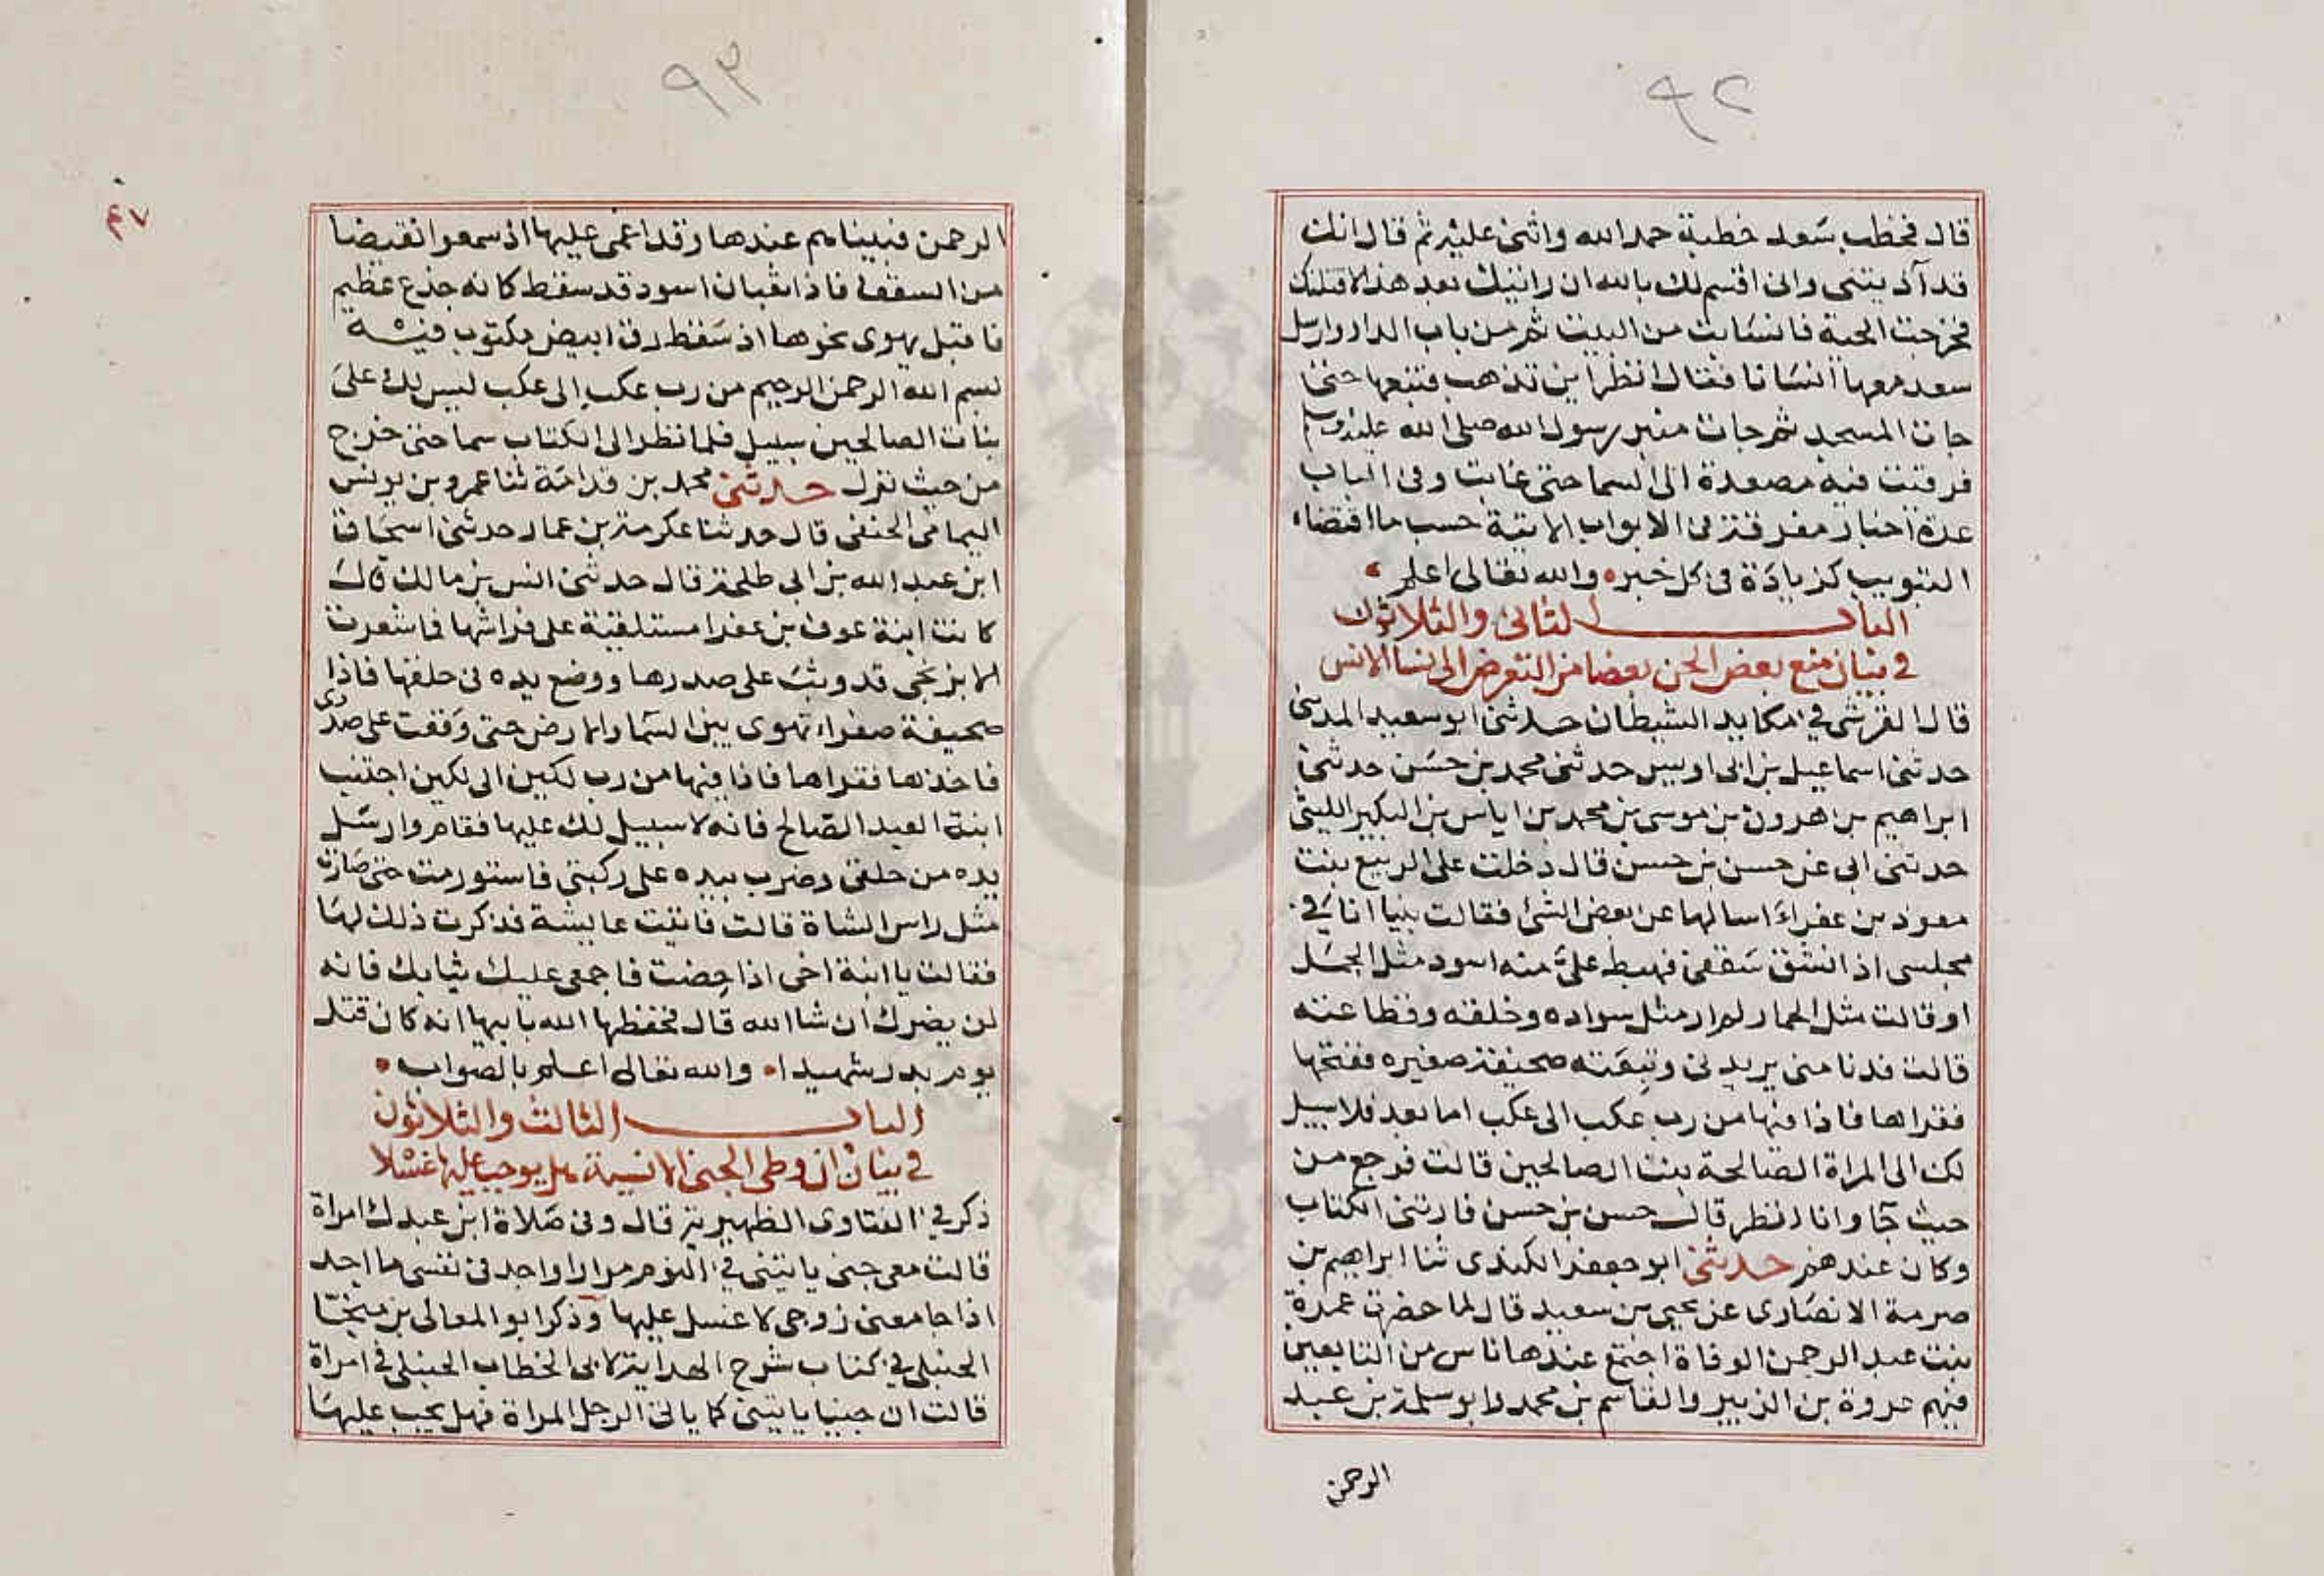 ٩٢
قال فخطب سعد خطبة حمد الله واثنى عليه ثم قال انك
قد آذيتنى وانى اقسم لك بالله ان رايتك بعد هذا لاقتلنك
فخرجت الحية فانسابت من البيت ثم من باب الدار وارسل
سعد معها انسانا فقال انظر اين تذهب فتبعها حتى
جات المسجد ثم جات منبر رسول الله صلى الله عليه وسلم
فرقت فيه مصعدة الى السما حتى غابت وفى الباب
عدة اخبار مفرقة فى الابواب الاتية حسب ما اقتضاه
التبويب كزيادة فى كل خبر والله تعالى اعلم
الباب الثانى والثلاثون
في بيان منع بعض الجن بعضا من التعرض الى نسا الانس
قال القرشى في مكايد الشيطان حدثنى ابو سعيد المدنى
حدثنى اسماعيل بن ابى اويس حدثنى محمد بن حسن حدثنى
ابراهيم بن هرون بن موسى بن محمد بن اياس بن البكير الليثى
حدثنى ابى عن حسن بن حسن قال دخلت على الربيع بنت
معوذ بن عفراء اسالها عن بعض الشئ فقالت بينا انا في
مجلسى اذ انشق سقفى فهبط علىّ منه اسود مثل الجمل
او قالت مثل الحمار لم ار مثل سواده وخلقه وفظاعته
قالت فدنا منى يريدنى وتبعته صحيفة صغيره ففتحها
فقراها فاذا فيها من رب عكب الى عكب اما بعد فلا سبيل
لك الى المراة الصالحة بنت الصالحين قالت فرجع من
حيث جآ وانا انظر قال حسن بن حسن فارتنى الكتاب
وكان عندهم حدثنى ابو جعفر الكندى ثنا ابراهيم بن
صرمة الانصارى عن يحيى بن سعيد قال لما حضرت عمرة
بنت عبد الرحمن الوفاة اجتمع عندها ناس من التابعين
فيهم عروة بن الزبير والقاسم بن محمد وابو سلمة بن عبد
الرحمن
٩٣
٤٧
الرحمن فبينا هم عندها وقد اغمى عليها اذ سمعوا نقيضا
من السقف فاذا ثعبان اسود قد سقط كانه جذع عظيم
فاقبل يهوى نحوها اذ سقط رق ابيض مكتوب فيه
بسم الله الرحمن الرحيم من رب عكب الى عكب ليس لك على
بنات الصالحين سبيل فلما نظر الى الكتاب سما حتى خرج
من حيث نزل حدثنى محمد بن قدامة ثنا عمرو بن يونس
اليمامى الحنفى قال حدثنا عكرمة بن عمار حدثنى اسحاق
ابن عبد الله بن ابى طلحة قال حدثنى انس بن مالك قال
كانت ابنة عوف بن عفرا مستلقية على فراشها فما شعرت
الا بزنجى قد وثب على صدرها ووضع يده فى حلقها فاذا
صحيفة صفراء تهوى بين السما والارض حتى وقعت على صدرى
فاخذها فقراها فاذا فيها من رب لكين الى لكين اجتنب
ابنة العبد الصالح فانه لا سبيل لك عليها فقام وارسل
يده من حلقى وضرب بيده على ركبتى فاستورمت حتى صارت
مثل راس الشاة قالت فاتيت عايشة فذكرت ذلك لها
فقالت يا ابنة اخى اذا حضت فاجمعى عليك ثيابك فانه
لن يضرك ان شا الله قال فحفظها الله بابيها انه كان قتل
يوم بدر شهيدا والله تعالى اعلم بالصواب
الباب الثالث والثلاثون
في بيان ان وطى الجنى الانسية هل يوجب عليها غسلا
ذكر في الفتاوى الظهيرية قال وفى صلاة ابن عبدك امراة
قالت معى جنى ياتينى في النوم مرارا واجد فى نفسى ما اجد
اذا جامعنى زوجى لا غسل عليها وذكر ابو المعالى بن منجا
الحنبلى في كتاب شرح الهداية لابى الخطاب الحنبلى في امراة
قالت ان جنيا ياتينى كما ياتى الرجل المراة فهل يجب عليها